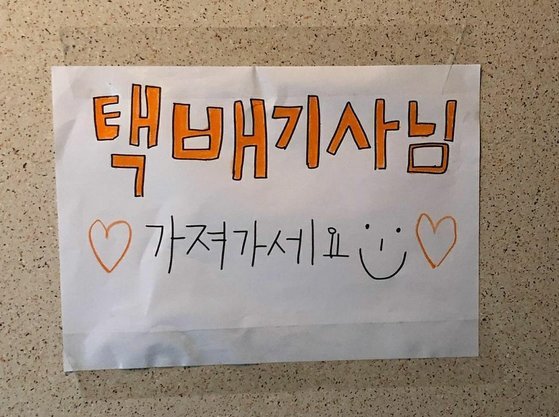 택배기사님
가져가세요